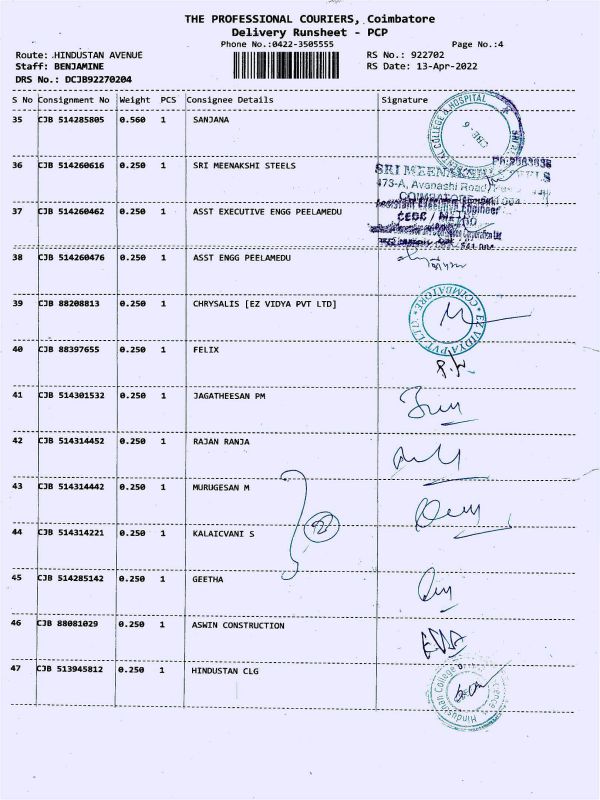 THE PROFESSIONAL COURIERS, Coimbatore
Delivery Runsheet - PCP
Phone No.:0422-3505555
Page No.:4
Route: HINDUSTAN AVENUE
RS No.: 922702
Staff: BENJAMINE
RS Date: 13-Apr-2022
DRS No.: DCJB92270204
S No Consignment No Weight PCS Consignee Details Signature
35 CJB 514285805 0.560 1 SANJANA
COLLEGE & HOSPITAL
CBE - 6
36 CJB 514260616 0.250 1 SRI MEENAKSHI STEELS
SRI MEENAKSHI STEELS
473-A, Avanashi Road
COIMBATORE
37 CJB 514260462 0.250 1 ASST EXECUTIVE ENGG PEELAMEDU
Assistant Executive Engineer
CEDC / METRO
38 CJB 514260476 0.250 1 ASST ENGG PEELAMEDU
39 CJB 88208813 0.250 1 CHRYSALIS [EZ VIDYA PVT LTD]
EZ VIDYA PVT. LTD * COIMBATORE *
40 CJB 88397655 0.250 1 FELIX
41 CJB 514301532 0.250 1 JAGATHEESAN PM
42 CJB 514314452 0.250 1 RAJAN RANJA
43 CJB 514314442 0.250 1 MURUGESAN M
44 CJB 514314221 0.250 1 KALAICVANI S
45 CJB 514285142 0.250 1 GEETHA
46 CJB 88081029 0.250 1 ASWIN CONSTRUCTION
47 CJB 513945812 0.250 1 HINDUSTAN CLG
Hindusthan College